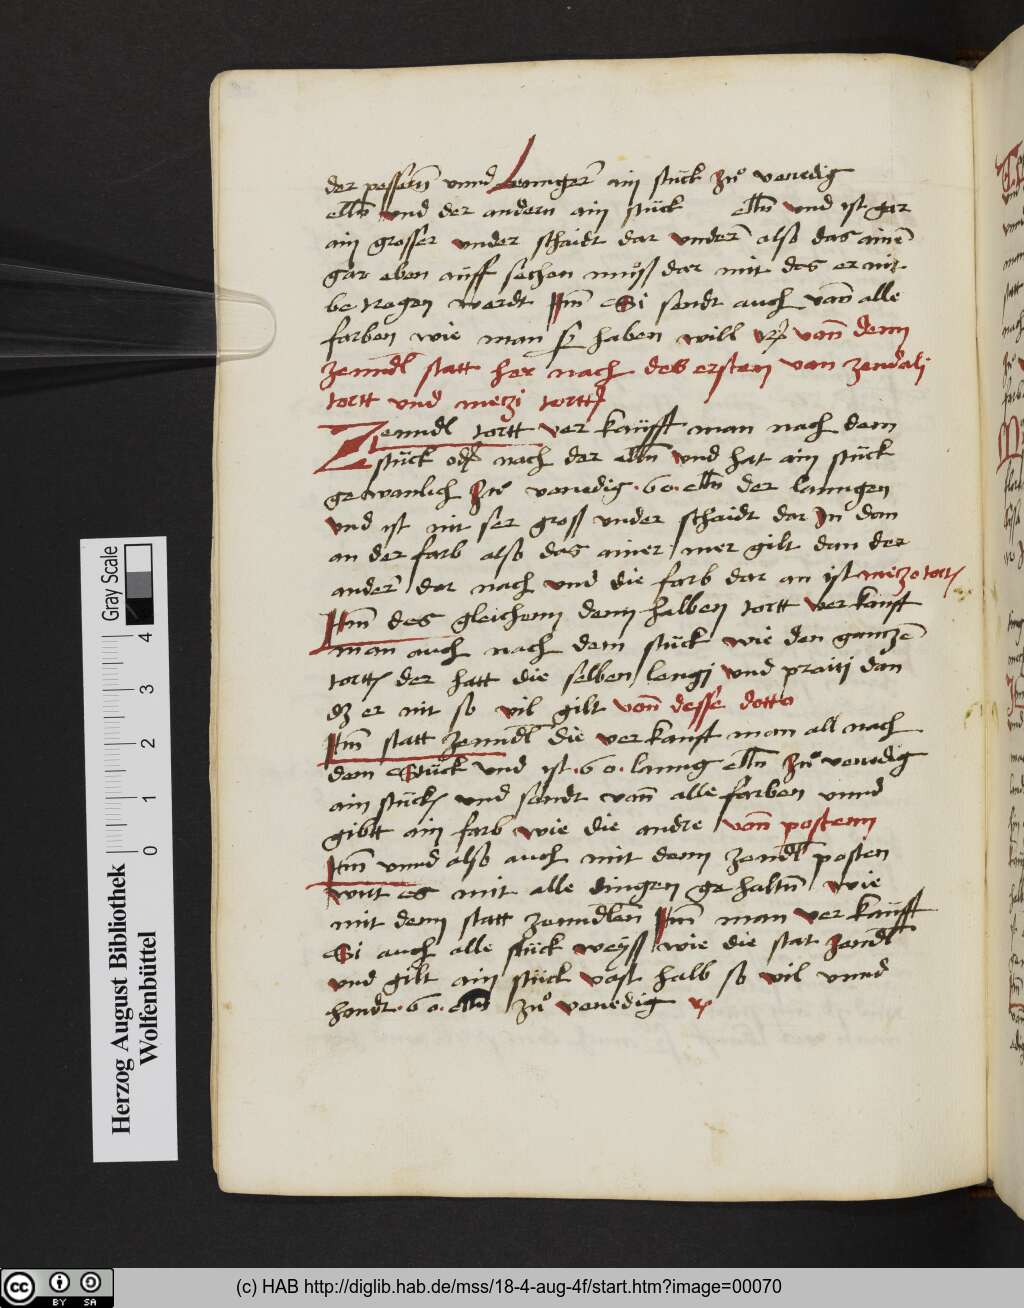 der pessern̄ vnnd Lenniger̄ ain stück zuͦ venedig
elln̄ vnd der andern ain stück elln̄ vnd ist gar
ain grosser vnder schaidt dar vnder̄ also das ainē
gar eben auff sechen muͦss dar mit das er nit
be trogen werdt Itm̄ Si sendt auch van̄ alle
farben wie man sy haben will von̄ denn
zenndl statt her nach des ersten van zendali
tortt vnd mezi tortt
Zenndl tortt ver kaufft man nach dem
stück oder nach der elln̄ vnd hat ain stück
gewanlich zuͦ venedig .60. elln̄ der lanngen
vnd ist nit ser gross vnder schaidt dar In dan
an der farb also das ainer mer gilt dan der
ander̄ dar nach vnd die farb dar an ist mezo tort
Itm̄ des gleichenn denn halben tortt ver kaufft
man auch nach dem stück wie den gantzē
tortt der hatt die selben lengj vnd praitj dan
dz er nit so vil gilt von̄ desse dotto
Itm̄ statt zenndl die ver kauft man all nach
dem Stück vnd ist .60. lanng elln̄ zuͦ venedig
ain stück vnd sendt van̄ alle farben vnnd
gibtt ain farb wie die andre von̄ postenn
Itm̄ vnnd also auch mit denn zendl posten
wirt es mit alle dingen ge haltn̄ wie
mit denn statt zenndlen̄ Itm̄ man ver kaufft
Si auch alle stück weyss wie die stat zendl
vnd gilt ain stück vast halb so vil vnnd
handt .60. elln̄ zuͦ venedig
Gray Scale
4 3 2 1 0
Herzog August Bibliothek
Wolfenbüttel
cc BY SA
(c) HAB http://diglib.hab.de/mss/18-4-aug-4f/start.htm?image=00070